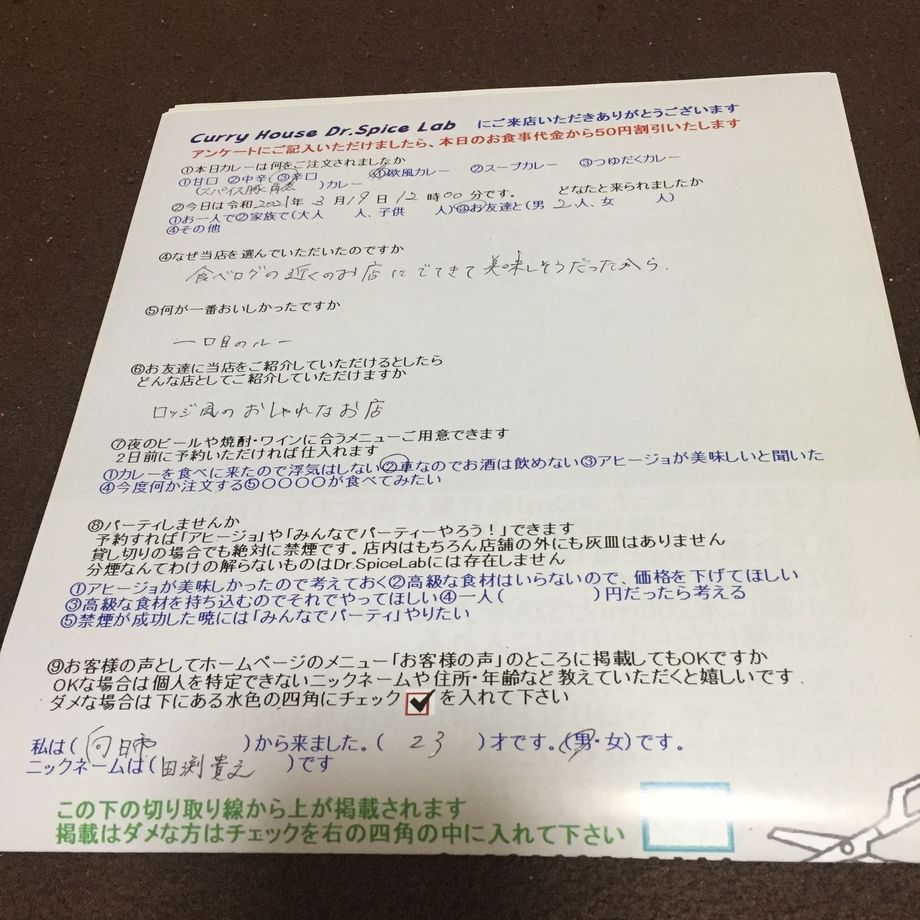 Curry House Dr.Spice Lab にご来店いただきありがとうございます
アンケートにご記入いただけましたら、本日のお食事代金から50円割引いたします
①本日カレーは何をご注文されましたか
①甘口 ②中辛 ③辛口 ①欧風カレー ②スープカレー ③つゆだくカレー
(スパイス豚角煮 )カレー
②今日は令和2021年3月19日12時00分です。 どなたと来られましたか
①お一人で②家族で(大人 人、子供 人)③お友達と(男 2人、女 人)
④その他
④なぜ当店を選んでいただいたのですか
食べログの近くのお店にでてきて美味しそうだったから.
⑤何が一番おいしかったですか
一口目のルー
⑥お友達に当店をご紹介していただけるとしたら
どんな店としてご紹介していただけますか
ロッジ風のおしゃれなお店
⑦夜のビールや焼酎・ワインに合うメニューご用意できます
2日前に予約いただければ仕入れます
①カレーを食べに来たので浮気はしない②車なのでお酒は飲めない③アヒージョが美味しいと聞いた
④今度何か注文する⑤〇〇〇〇が食べてみたい
⑧パーティしませんか
予約すれば「アヒージョ」や「みんなでパーティーやろう!」できます
貸し切りの場合でも絶対に禁煙です。店内はもちろん店舗の外にも灰皿はありません
分煙なんてわけの解らないものはDr.SpiceLabには存在しません
①アヒージョが美味しかったので考えておく②高級な食材はいらないので、価格を下げてほしい
③高級な食材を持ち込むのでそれでやってほしい④一人( )円だったら考える
⑤禁煙が成功した暁には「みんなでパーティ」やりたい
⑨お客様の声としてホームページのメニュー「お客様の声」のところに掲載してもOKですか
OKな場合は個人を特定できないニックネームや住所・年齢など教えていただくと嬉しいです.
ダメな場合は下にある水色の四角にチェック を入れて下さい
私は( )から来ました。( 23 )才です。(男・女)です。
ニックネームは(田渕貴之 )です
この下の切り取り線から上が掲載されます
掲載はダメな方はチェックを右の四角の中に入れて下さい